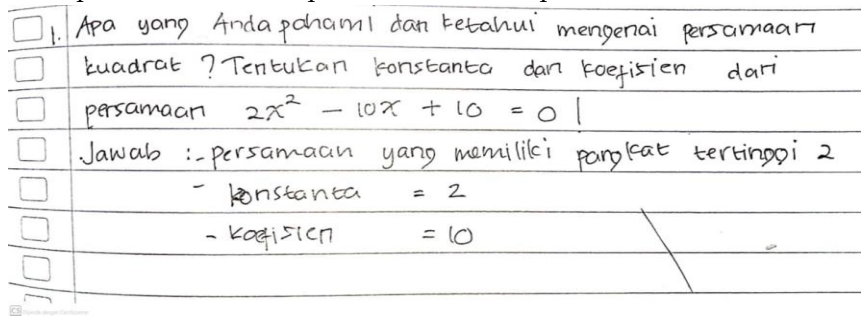 1. Apa yang Anda pahami dan ketahui mengenai persamaan
kuadrat ? Tentukan konstanta dan koefisien dari
persamaan 2x² - 10x + 10 = 0 |
Jawab :- persamaan yang memiliki pangkat tertinggi 2
- konstanta = 2
- koefisien = 10
CS Dipindai dengan CamScanner